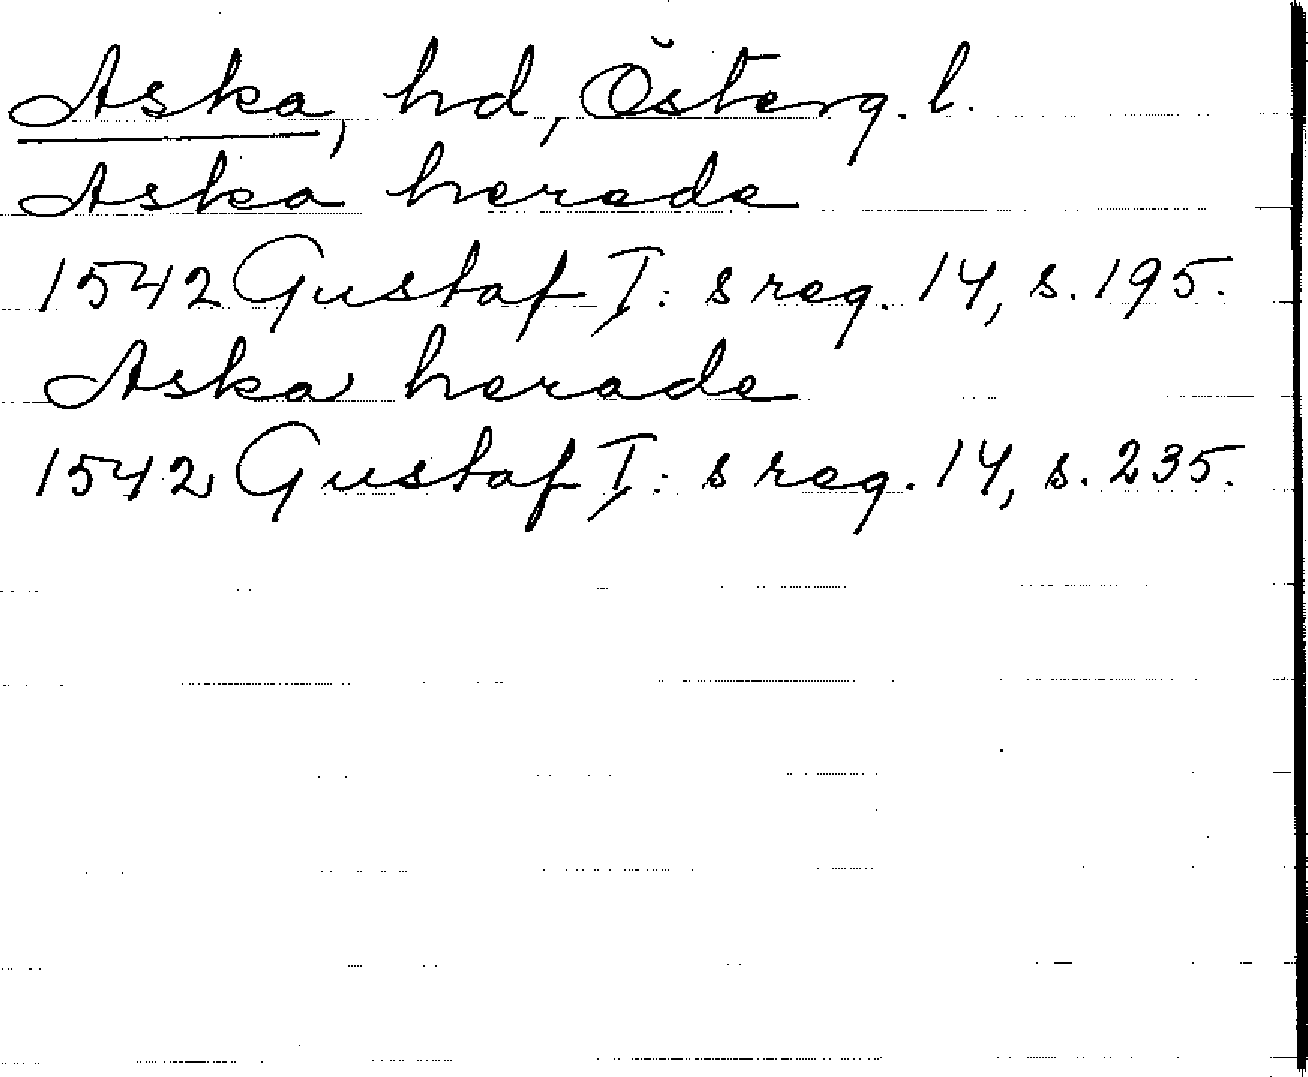 Aska, hd, Österg. l.
Aska herade
1542 Gustaf I:s reg. 14, s. 195.
Aska herade
1542 Gustaf I:s reg. 14, s. 235.